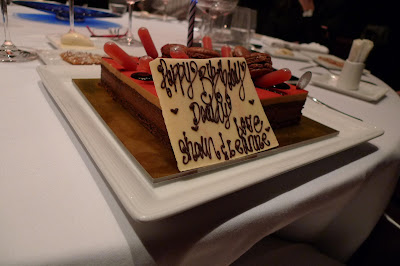 Happy Birthday
Daddy
Love
Shaun & Bernice